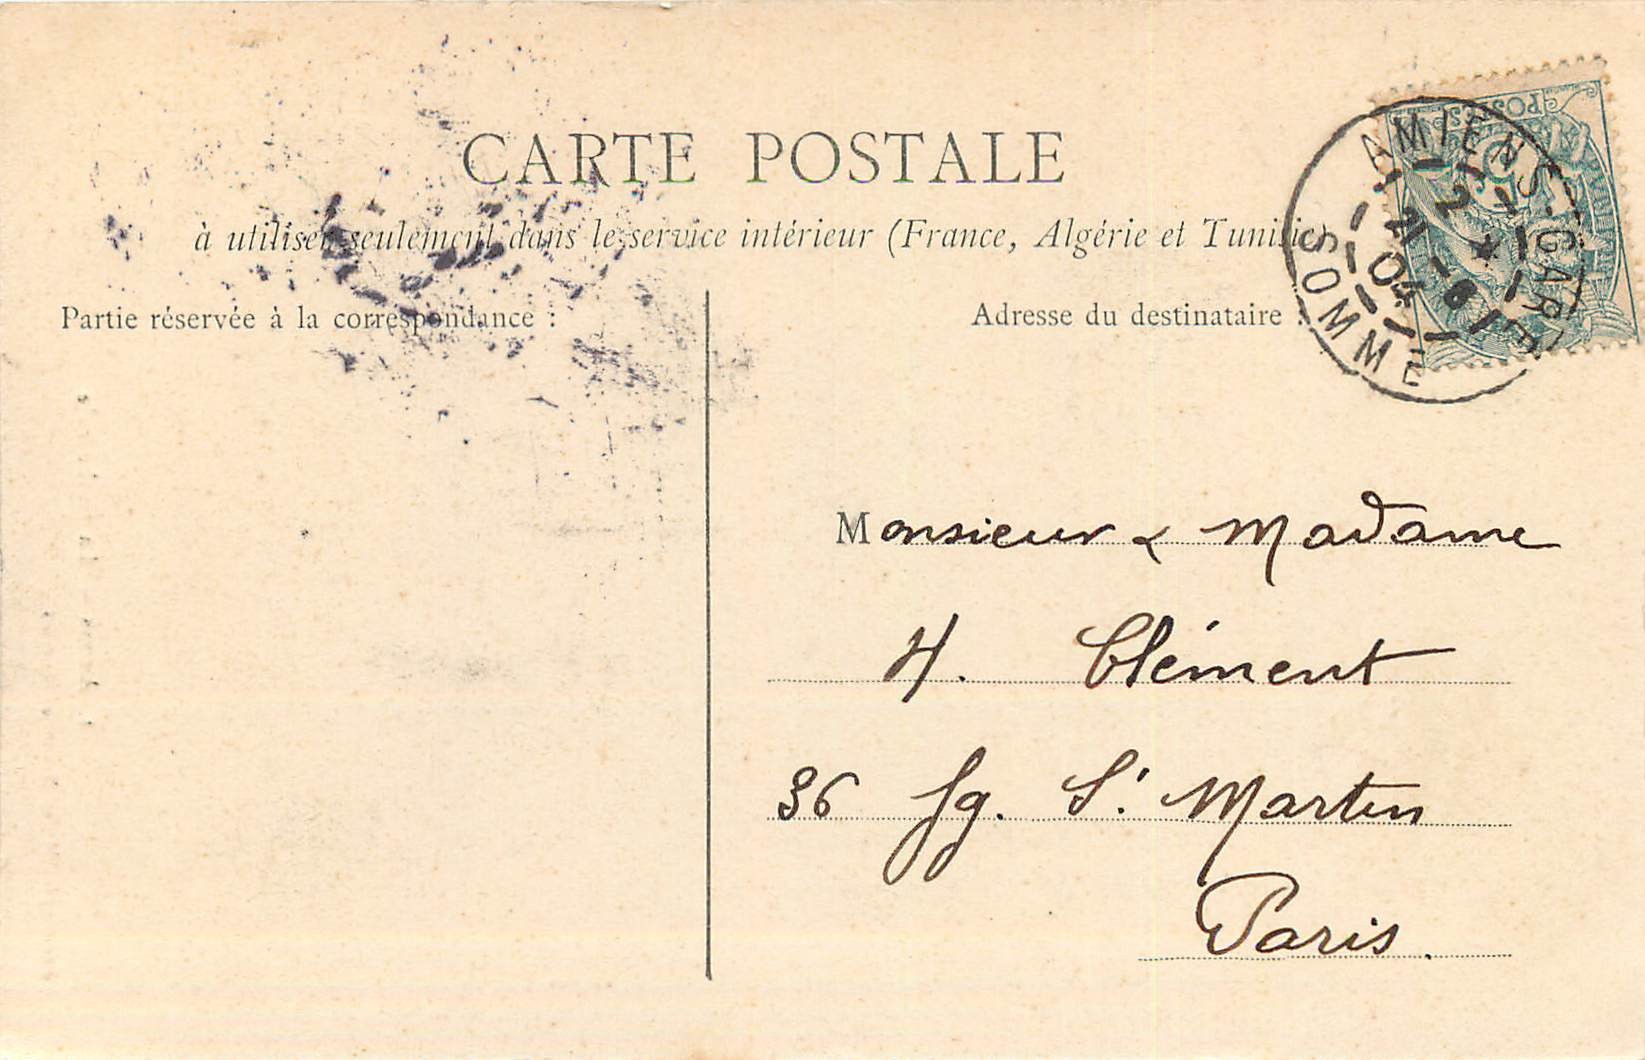 CARTE POSTALE
à utiliser seulement dans le service intérieur (France, Algérie et Tunisie)
Partie réservée à la correspondance :
Adresse du destinataire :
POSTES
AMIENS-GARE
12 *
21 - 6
04
SOMME
Monsieur & Madame
H. Clément
36 fg. St. Martin
Paris.